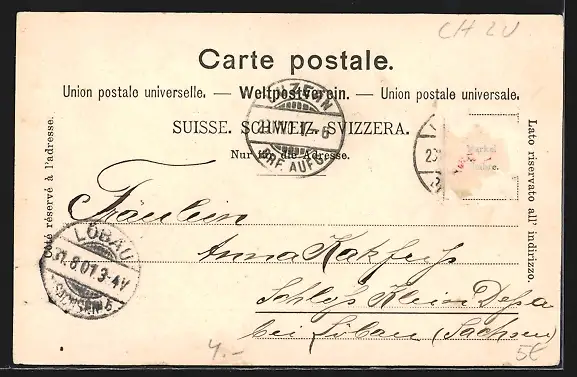 CH ZU
Carte postale.
Union postale universelle. — Weltpostverein. — Union postale universale.
SUISSE. SCHWEIZ. SVIZZERA.
Nur für die Adresse.
Côté réservé à l'adresse.
Lato riservato all' indirizzo.
LUZERN
BRF. AUFG.
LÖBAU
31.8.01.3-4V
Fräulein
Anna
Schloss Klein Dehsa
bei Löbau (Sachsen)
4.-
5€